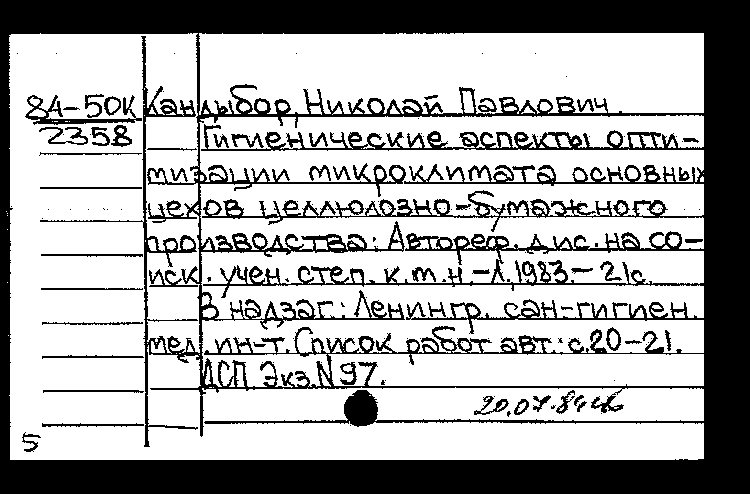 84-50К Кандыбор, Николай Павлович.
2358 Гигиенические аспекты опти-
мизации микроклимата основных
цехов целлюлозно-бумажного
производства: Автореф. дис. на со-
иск. учен. степ. к.м.н. -Л., 1983. - 21с.
В надзаг.: Ленингр. сан-гигиен.
мед. ин-т. Список работ авт.: с.20-21.
ДСП. Экз. N 97.
20.07.84
5